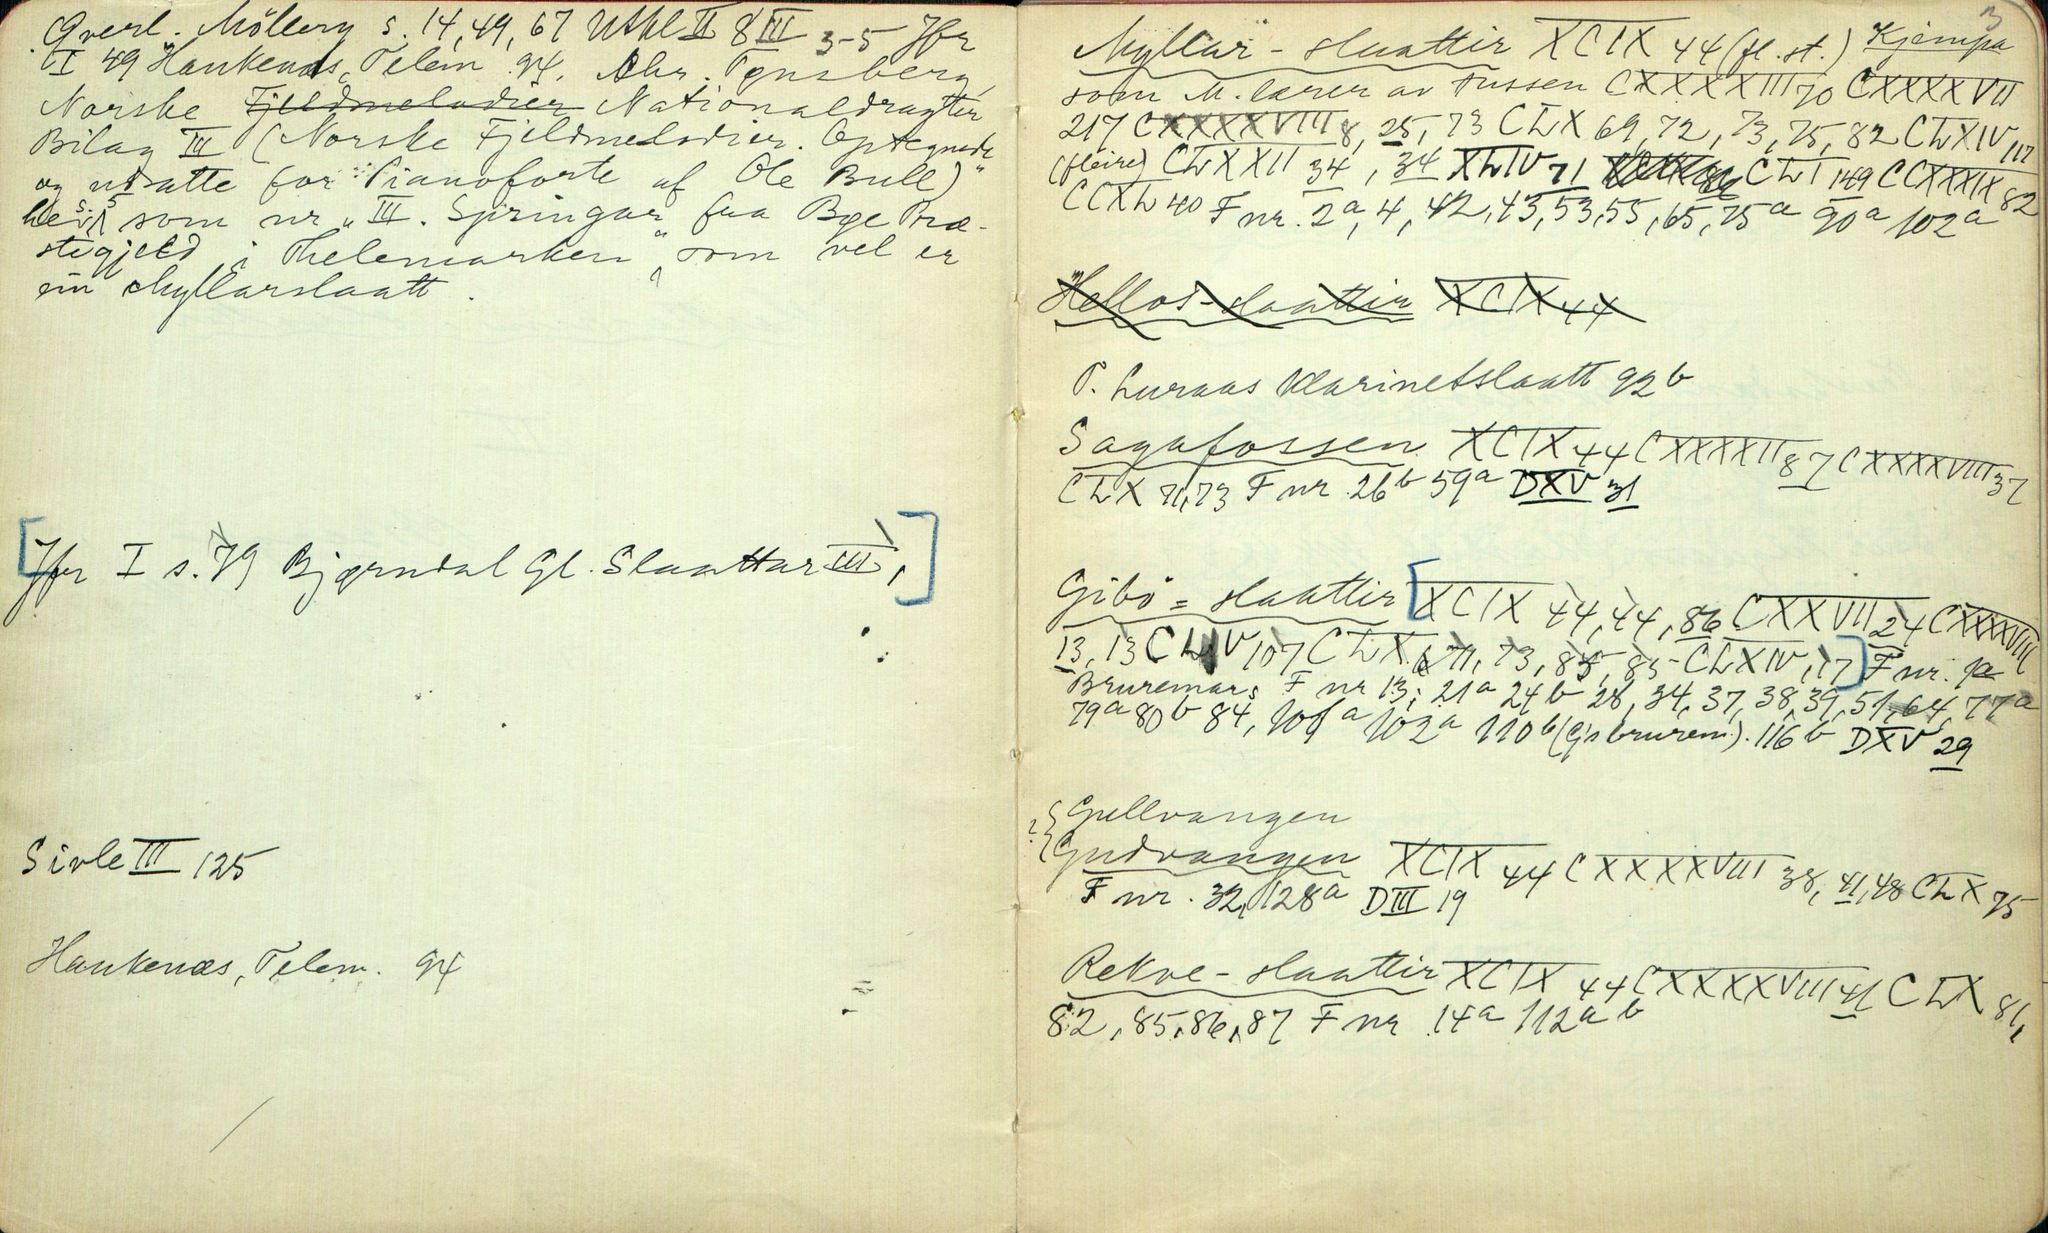 Qverl. Möllerg s. 14, 49, 67 Utkl II 8 III 3-5 Jfr
I 49 Haukenæs, Telem 94. Chr. Tønsberg,
Norske Fjeldmelodier Nationaldragter
Bilag III (Norske Fjeldmelodier. Optegnede
og udsatte for Pianoforte af Ole Bull)"
s. 5 som nr "III. Springar" fra Bøe Præ-
stegjeld i Thelemarken" som vel er
ein Myllarslaatt.
[Jfr I s. 79 Bjørndal Gl. Slaattar III,]
Sivle III 125
Haukenæs, Telem. 94
3
Myllar-slaattir XCIX 44 (fl. st.) Kjempa
som M. lærer av Fussen CXXXXIII 70 CXXXXVII
217 CXXXXVIII 8, 25, 73 CLX 69, 72, 73, 75, 82 CLXIV 117
(fleire) CLXXII 34, 34 XLIV 71 CLI 149 CCXXXIX 82
CCXL 40 F nr. 2a, 4, 42, 43, 53, 55, 65, 75a 90a 102a
Hellos-slaattir XCIX 44
T. Luraas Klarinetslaatt 92b
Sagafossen XCIX 44 CXXXXII 87 CXXXXVIII 37
CLX 71, 73 F nr. 26b 59a DXV 31
Gibö-slaattir [XCIX 44, 44, 86 CXXVII 24 CXXXXVIII
13, 13 CLIV 107 CLX 71, 73, 85, 85 CLXIV, 17] F nr. 1a
Bruremars F nr 13, 21a 24b 28, 34, 37, 38, 39, 51, 64, 77a
79a 80b 84, 101a 102a 110b (Gjs brurem). 116b DXV 29
? { Gullvangen
Gudvangen XCIX 44 CXXXXVIII 38, 41, 48 CLX 75
F nr. 32, 128a DIII 19
Rekve-slaattir XCIX 44 CXXXXVIII 41 CLX 81,
82, 85, 86, 87 F nr 14a 112a b